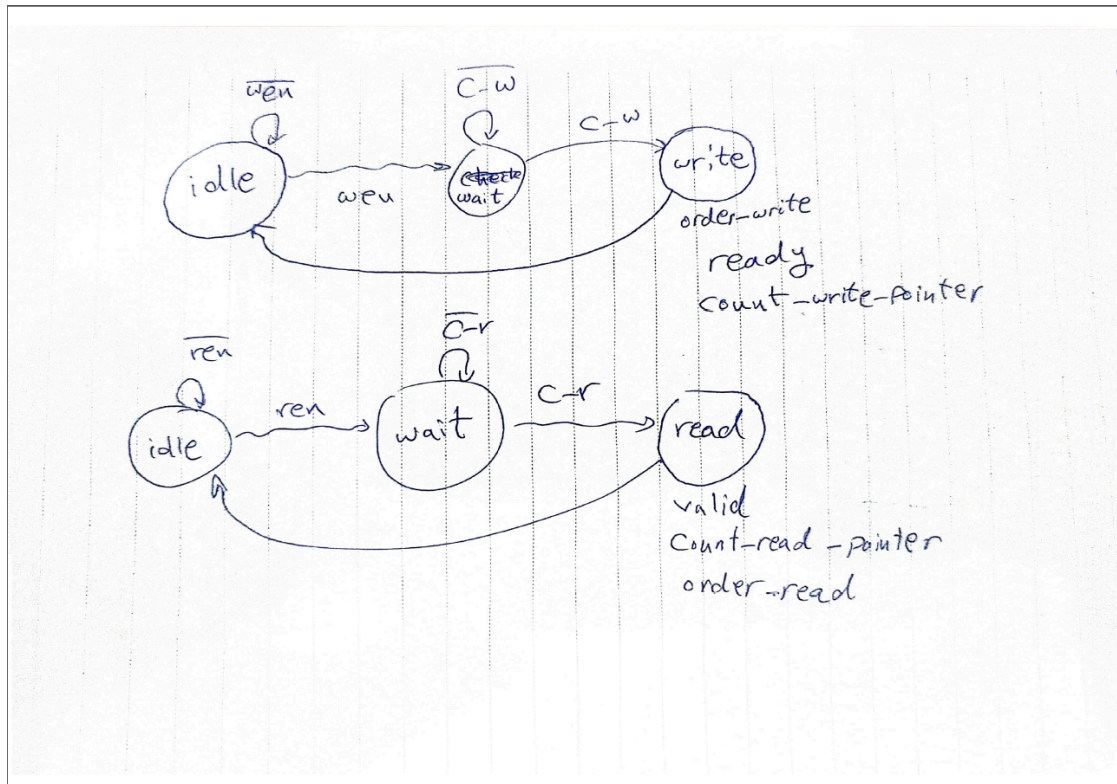 w̅e̅n̅
C̅-̅w̅
C-w
idle
wen
wait
write
order-write
ready
count-write-pointer
r̅e̅n̅
C̅-̅r̅
ren
C-r
idle
wait
read
valid
Count-read-pointer
order-read